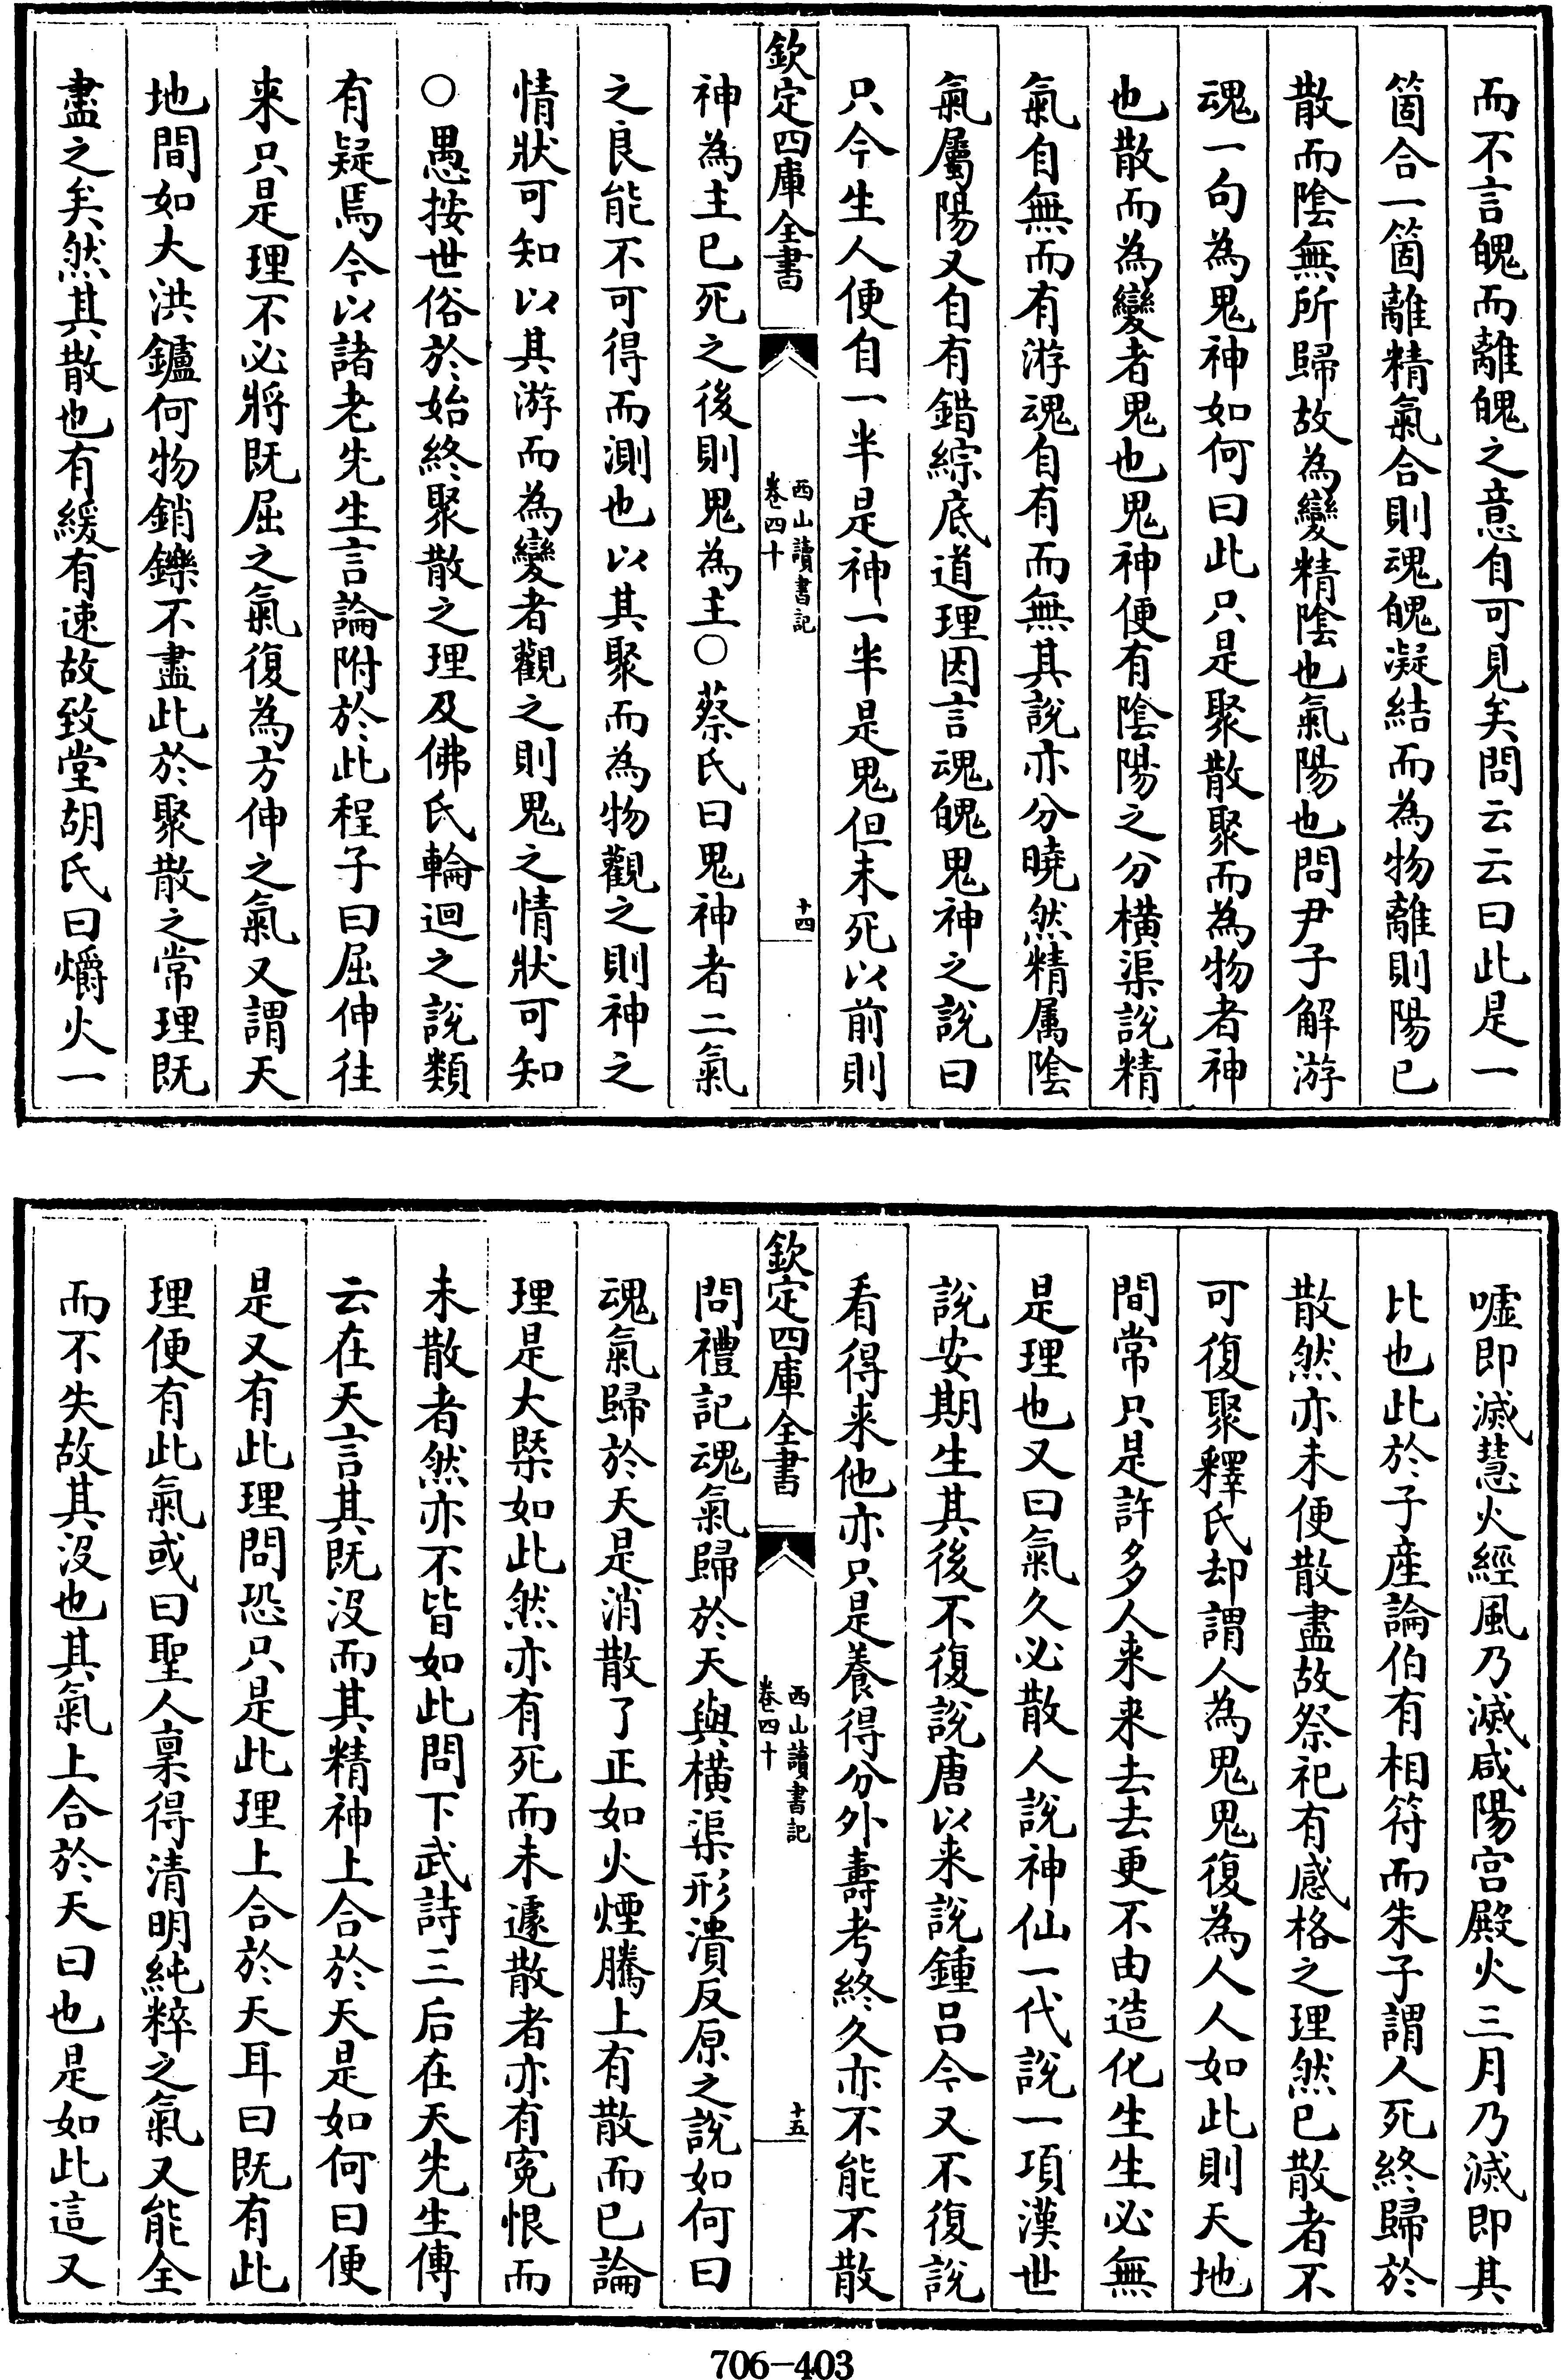 而不言魄而離魄之意自可見矣問云云曰此是一
箇合一箇離精氣合則魂魄凝結而為物離則陽已
散而陰無所歸故為變精陰也氣陽也問尹子解游
魂一句為鬼神如何曰此只是聚散聚而為物者神
也散而為變者鬼也鬼神便有陰陽之分橫渠說精
氣自無而有游魂自有而無其說亦分曉然精屬陰
氣屬陽又自有錯綜底道理因言魂魄鬼神之說曰
只今生人便自一半是神一半是鬼但未死以前則
欽定四庫全書
西山讀書記
卷四十
十四
神為主已死之後則鬼為主○蔡氏曰鬼神者二氣
之良能不可得而測也以其聚而為物觀之則神之
情狀可知以其游而為變者觀之則鬼之情狀可知
○愚按世俗於始終聚散之理及佛氏輪迴之說類
有疑焉今以諸老先生言論附於此程子曰屈伸往
来只是理不必將既屈之氣復為方伸之氣又謂天
地間如大洪鑪何物銷鑠不盡此於聚散之常理既
盡之矣然其散也有緩有速故致堂胡氏曰爝火一
噓即滅慧火經風乃滅咸陽宫殿火三月乃滅即其
比也此於子産論伯有相符而朱子謂人死終歸於
散然亦未便散盡故祭祀有感格之理然已散者不
可復聚釋氏却謂人為鬼鬼復為人人如此則天地
間常只是許多人来来去去更不由造化生生必無
是理也又曰氣久必散人說神仙一代說一項漢世
說安期生其後不復說唐以来說鍾吕今又不復說
看得来他亦只是養得分外壽考終久亦不能不散
欽定四庫全書
西山讀書記
卷四十
十五
問禮記魂氣歸於天與橫渠形潰反原之說如何曰
魂氣歸於天是消散了正如火煙騰上有散而已論
理是大槩如此然亦有死而未遽散者亦有寃恨而
未散者然亦不皆如此問下武詩三后在天先生傳
云在天言其既沒而其精神上合於天是如何曰便
是又有此理問恐只是此理上合於天耳曰既有此
理便有此氣或曰聖人稟得清明純粹之氣又能全
而不失故其沒也其氣上合於天曰也是如此這又
706-403